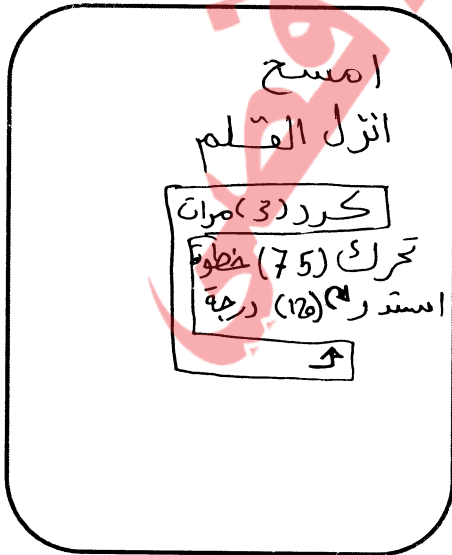 امسح
انزل القلم
كرر (3) مرات
تحرك (75) خطوة
استدر (120) درجة